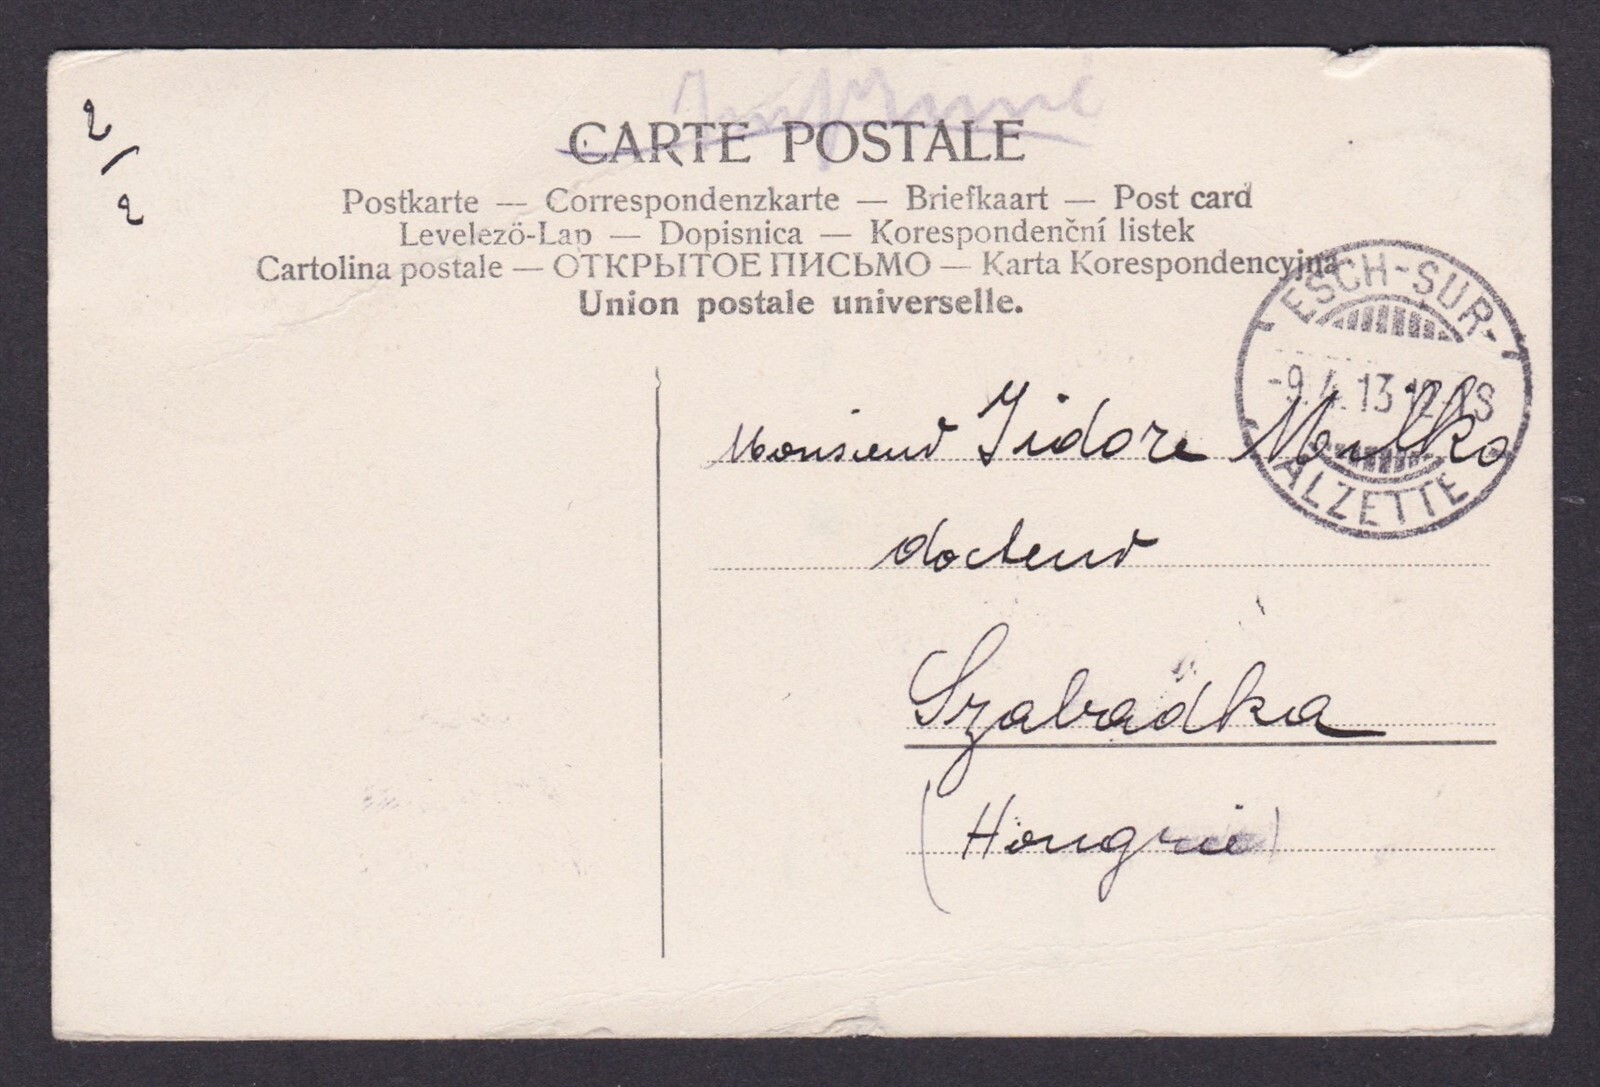 2/2
CARTE POSTALE
Postkarte — Correspondenzkarte — Briefkaart — Post card
Levelezö-Lap — Dopisnica — Korespondenční listek
Cartolina postale — ОТКРЫТОЕ ПИСЬМО — Karta Korespondencyjna
Union postale universelle.
ESCH-SUR-
-9.4.13
ALZETTE
Monsieur Isidore
docteur
Szabadka
(Hongrie)